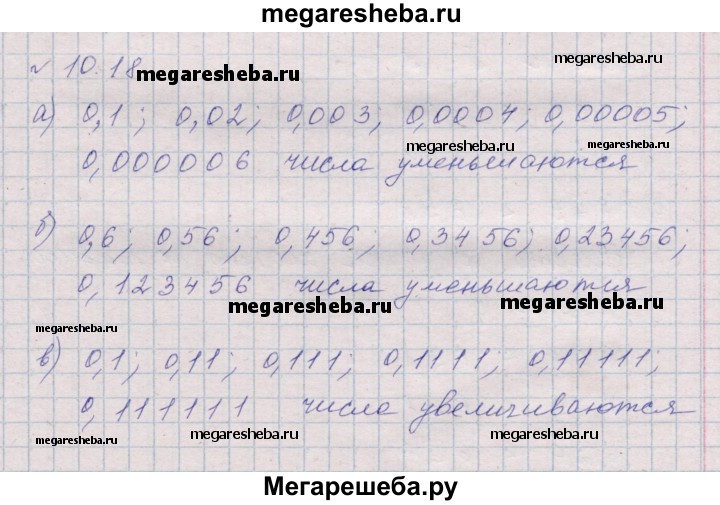 megaresheba.ru
№ 10.18 megaresheba.ru megaresheba.ru
а) 0,1; 0,02; 0,003; 0,0004; 0,00005;
megaresheba.ru megaresheba.ru
0,000006 числа уменьшаются
б) 0,6; 0,56; 0,456; 0,3456; 0,23456;
0,123456 числа уменьшаются
megaresheba.ru megaresheba.ru
megaresheba.ru
в) 0,1; 0,11; 0,111; 0,1111; 0,11111;
0,111111 числа увеличиваются
megaresheba.ru megaresheba.ru megaresheba.ru
Мегарешеба.ру